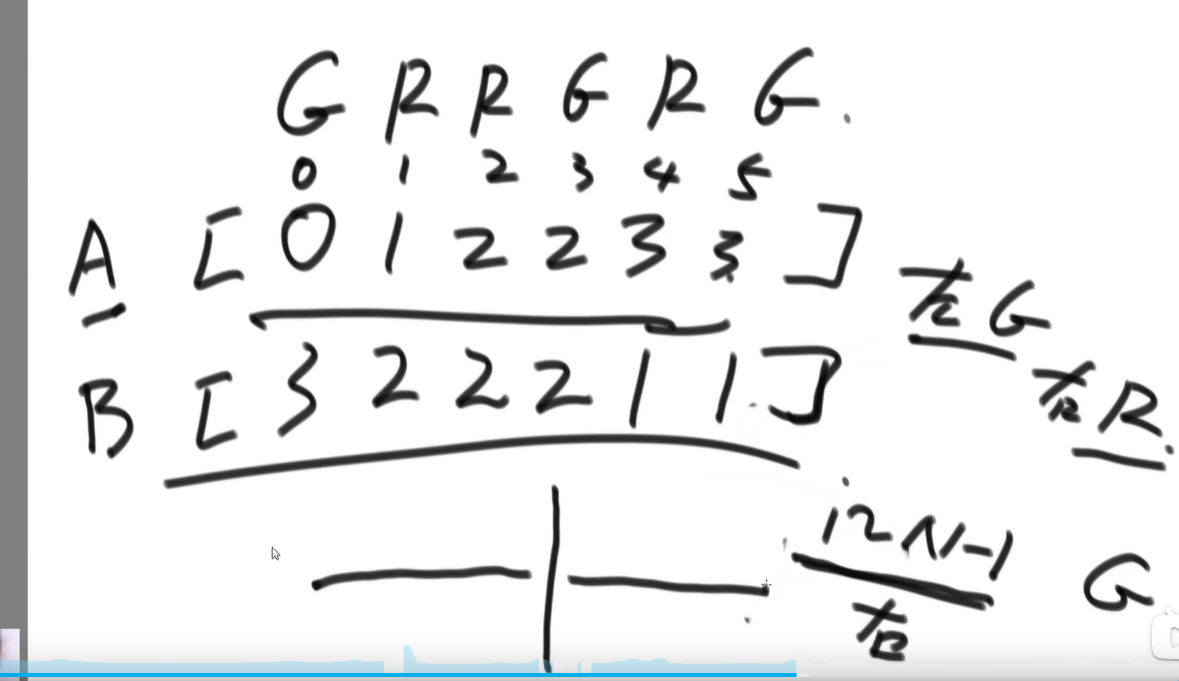 G R R G R G
0 1 2 3 4 5
A [ 0 1 2 2 3 3 ]
左 G
B [ 3 2 2 2 1 1 ]
右 R
12N-1
G